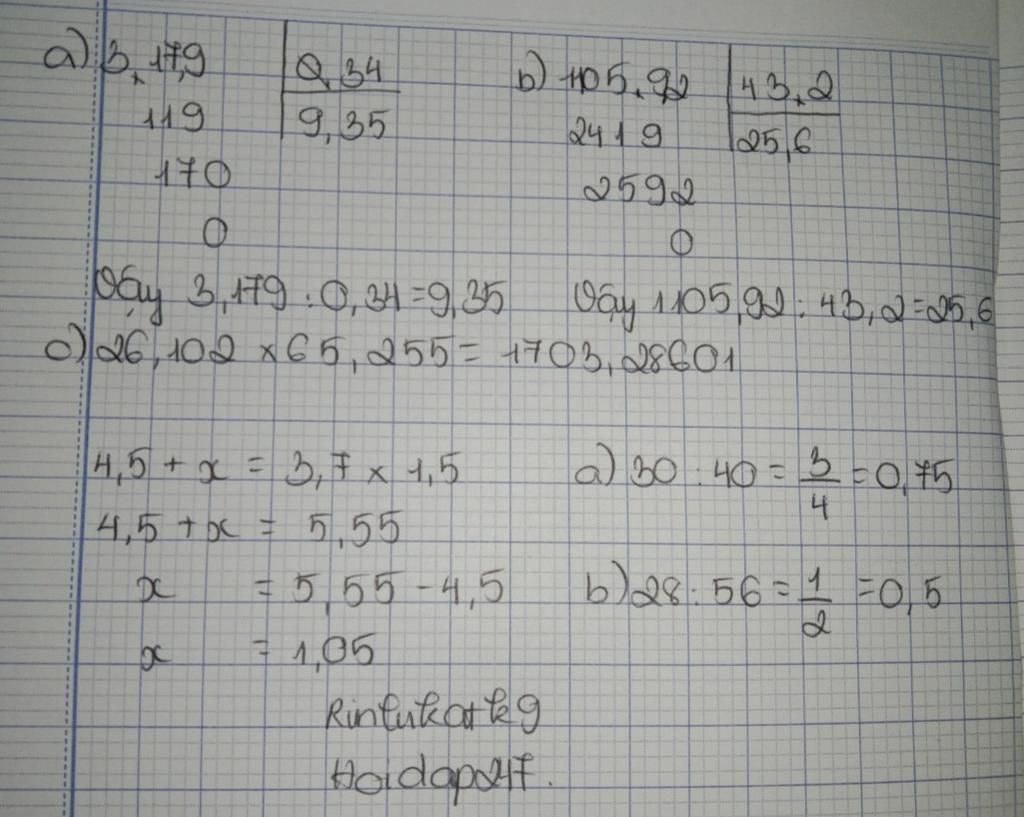 a) 3,17,9 | 0,34 b) 1105,92 | 43,2
119 | 9,35 2419 | 25,6
170 2592
0 0
Vậy 3,179 : 0,34 = 9,35 Vậy 1105,92 : 43,2 = 25,6
c) 26,102 × 65,255 = 1703,28601
4,5 + x = 3,7 × 1,5 a) 30 : 40 = 3/4 = 0,75
4,5 + x = 5,55
x = 5,55 - 4,5 b) 28 : 56 = 1/2 = 0,5
x = 1,05
Hoidap247.